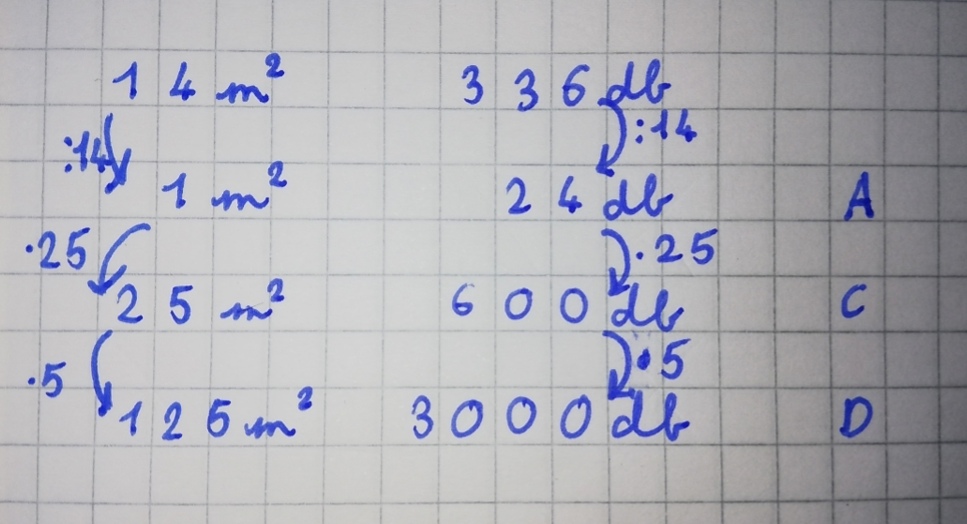 14 m² 336 db
:14 :14
1 m² 24 db A
·25 ·25
25 m² 600 db C
·5 ·5
125 m² 3000 db D